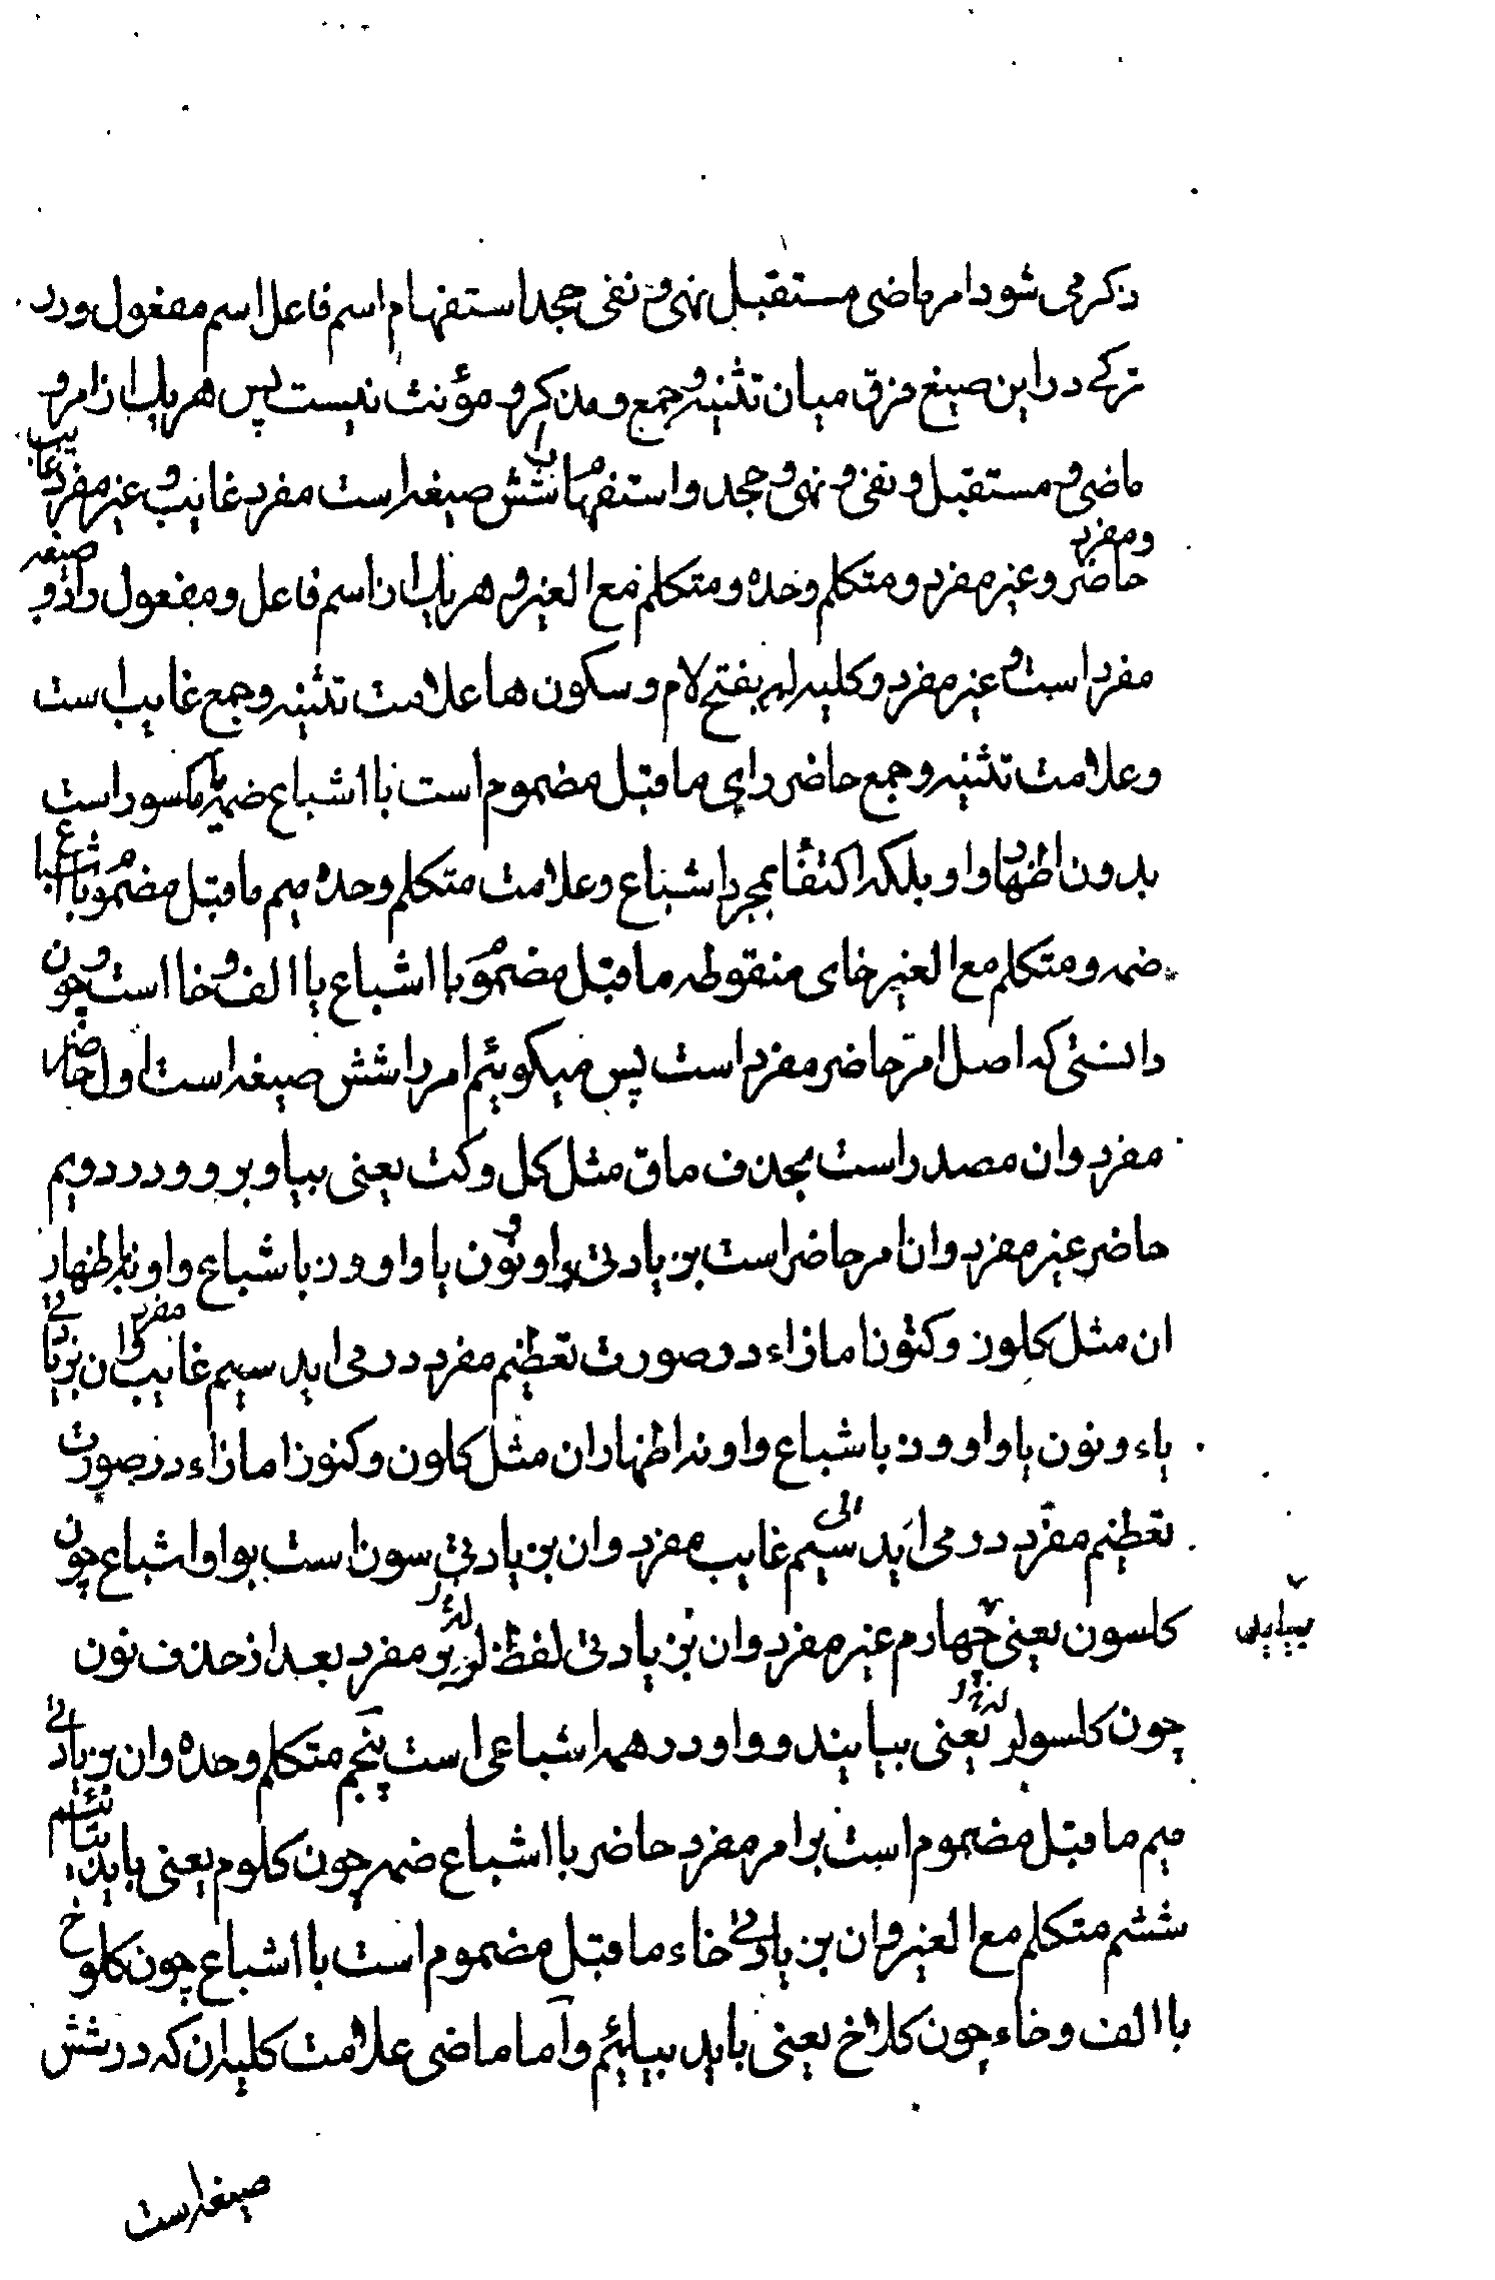 ذکر می شود امر ماضی مستقبل نهی و نفی جحد استفهام اسم فاعل اسم مفعول و در
ترکی در این صیغ فرق میان تثنیه و جمع و مذکر و مؤنث نیست پس هر یک از امر و
ماضی و مستقبل و نفی و نهی و جحد و استفهام را شش صیغه است مفرد غایب و غیر مفرد غایب
و مفرد حاضر و غیر مفرد و متکلم وحده و متکلم مع الغیر و هر یک از اسم فاعل و مفعول را دو صیغه
مفرد است و غیر مفرد و کلیه لر بفتح لام و سکون ها علامت تثنیه و جمع غایب است
و علامت تثنیه و جمع حاضر زای ماقبل مضموم است با اشباع ضمه یا مکسور است
بدون اظهار واو بلکه اکتفا بمجرد اشباع و علامت متکلم وحده میم ماقبل مضموم با اشباع
ضمه و متکلم مع الغیر خای منقوطه ماقبل مضموم با اشباع یا الف و خا است و چون
دانستی که اصل امر حاضر مفرد است پس میکوئیم امر را شش صیغه است اول حاضر
مفرد و ان مصدر است بحذف ماق مثل کل و کت یعنی بیا و برو و در دویم
حاضر غیر مفرد و ان امر حاضر است بزیادتی واو و نون یا واو و ن با شباع واو نه اظهار
ان مثل کلون و کتون اما زاء در صورت تعظیم مفرد در می اید سیم غایب مفرد و ان بزیادتی
یاء و نون یا واو و ن با شباع واو نه اظهار ان مثل کلون و کنوز اما زاء در صورت
تعظیم مفرد در می اید سیم غایب مفرد و ان بزیادتی سون است بواو اشباع چون
کلسون یعنی بیاید چهارم غیر مفرد و ان بزیادتی لفظ لر بر مفرد بعد از حذف نون
چون کلسولر یعنی بیایند و واو در همه اشباعی است پنجم متکلم وحده و ان بزیادتی
میم ماقبل مضموم است بر امر مفرد حاضر با اشباع ضمه چون کلوم یعنی باید بیایم
ششم متکلم مع الغیر و ان بزیادتی خاء ماقبل مضموم است با اشباع چون کلوخ
یا الف و خاء چون کلاخ یعنی باید بیائیم و اما ماضی علامت کلیه ان که در شش
صیغه است